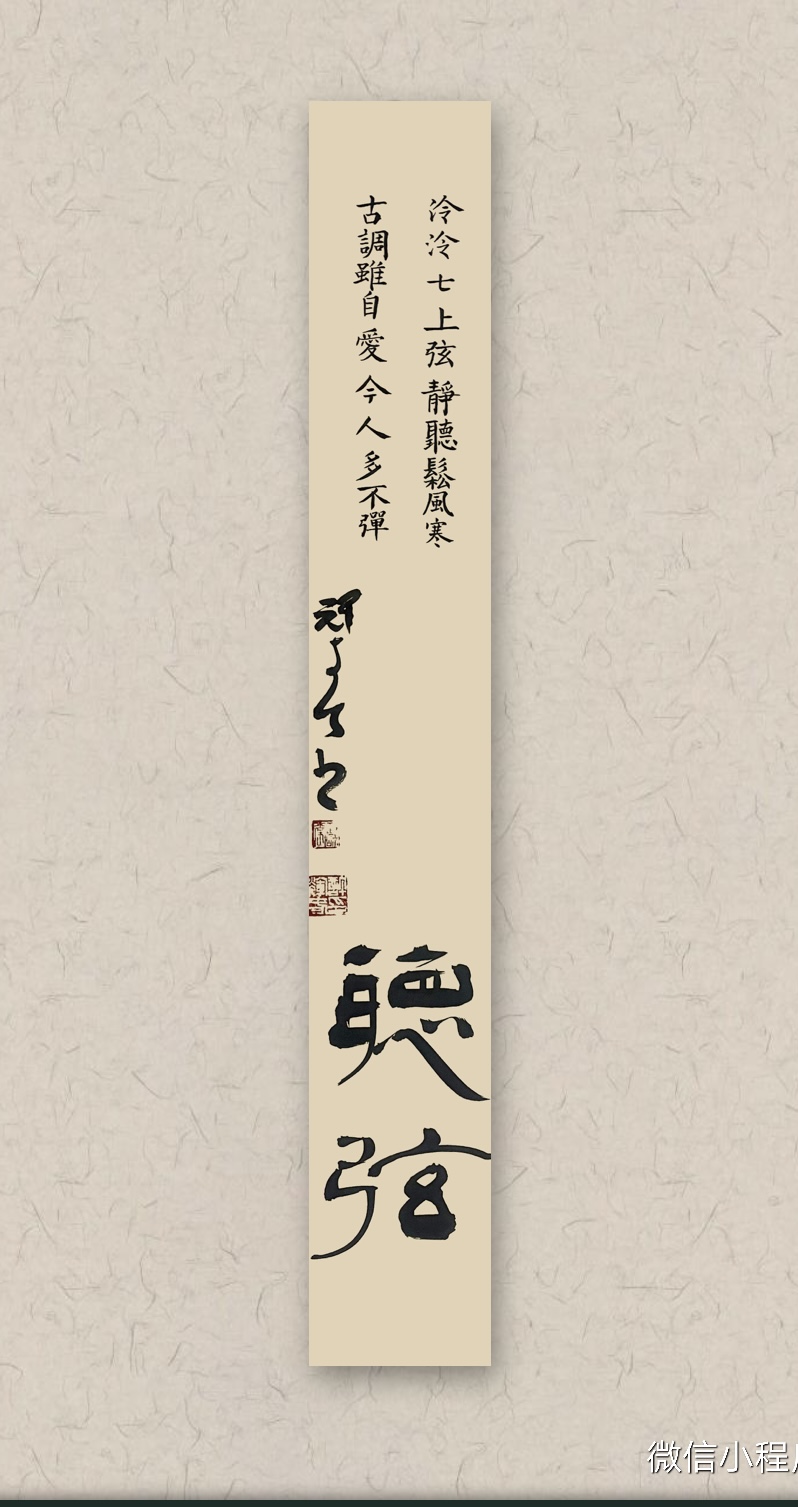 泠泠七上弦靜聽鬆風寒
古調雖自愛今人多不彈
聽弦
微信小程